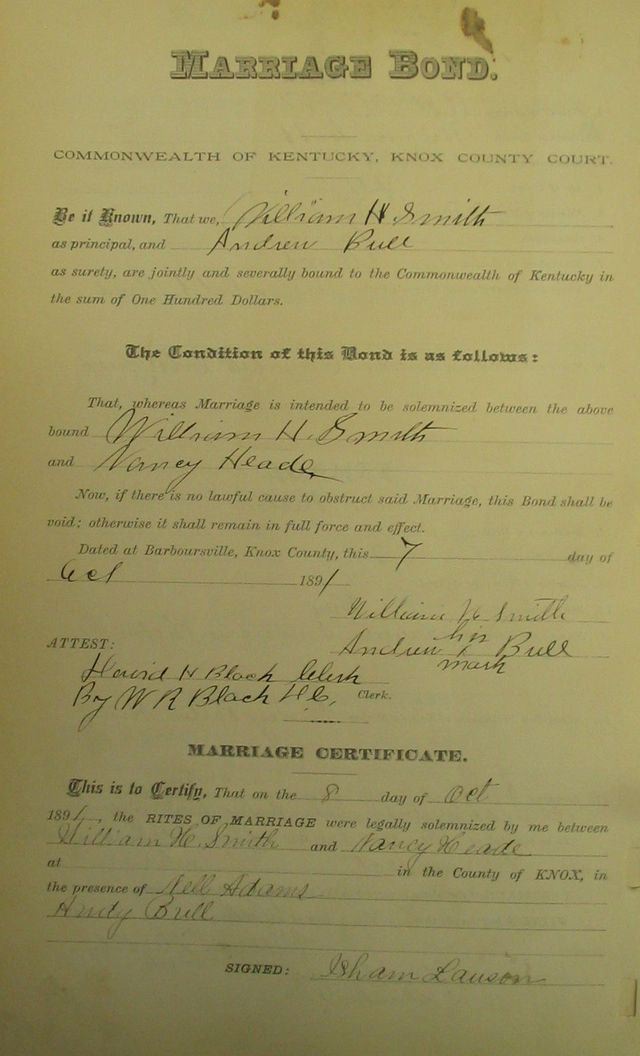 MARRIAGE BOND.
COMMONWEALTH OF KENTUCKY, KNOX COUNTY COURT.
Be it Known, That we, William H Smith
as principal, and Andrew Bull
as surety, are jointly and severally bound to the Commonwealth of Kentucky in
the sum of One Hundred Dollars.
The Condition of this Bond is as follows:
That, whereas Marriage is intended to be solemnized between the above
bound William H. Smith
and Nancy Heade
Now, if there is no lawful cause to obstruct said Marriage, this Bond shall be
void; otherwise it shall remain in full force and effect.
Dated at Barboursville, Knox County, this 7 day of
Oct 1891
William H Smith
Andrew his Bull
mark
ATTEST:
H Black Clerk
By W R Black D.C. Clerk.
MARRIAGE CERTIFICATE.
This is to Certify, That on the 8 day of Oct
1891, the RITES OF MARRIAGE were legally solemnized by me between
William H. Smith and Nancy Heade
at in the County of KNOX, in
the presence of Nell Adams
Andy Bull
SIGNED: Isham Lawson